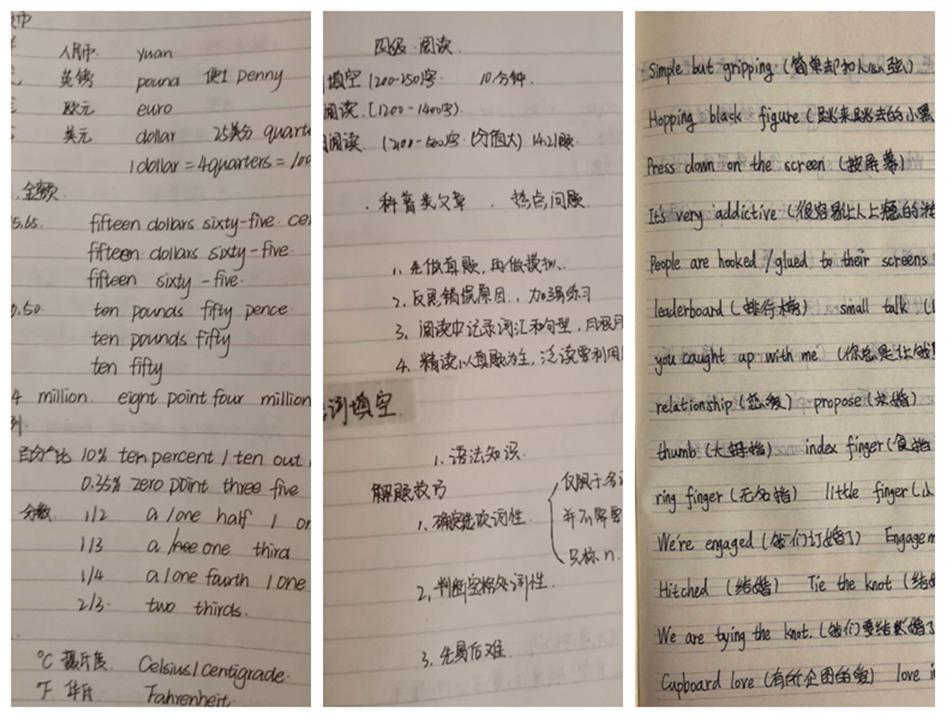 人民币 yuan
英镑 pound 便士 penny
欧元 euro
美元 dollar 25美分 quarte
1 dollar = 4 quarters = 100
金额
fifteen dollars sixty-five ce
fifteen dollars sixty-five.
fifteen sixty-five.
0.50 ten pounds fifty pence.
ten pounds fifty
ten fifty
4 million eight point four million
百分比 10% ten percent / ten out
0.35% zero point three five
分数 1/2 a / one half 1 or
1/3 a / one third
1/4 a / one fourth / one
2/3. two thirds.
°C 摄氏度 Celsius / Centigrade.
°F 华氏 Fahrenheit.
四级 阅读.
填空 (200-250字 10分钟.
阅读. (1200-1400字).
阅读. 分值大)
科普类文章 . 热点问题.
1. 先做真题, 再做模拟.
2. 反思错误原因, 加强练习
3. 阅读中记录词汇和句型,
4. 精读以真题为主, 泛读要利用
词填空
1. 语法知识.
解题技巧
仅限于名
1. 确定选项词性.
并不需要
只标 n.
2. 判断空格处词性.
3. 先易后难.
Simple but gripping (简单却扣人心弦)
Hopping black figure (跳来跳去的小黑
Press down on the screen (按屏幕)
It's very addictive (很容易让人上瘾的
People are hooked / glued to their screens
leaderboard (排行榜) small talk
you caught up with me (你总是让我
relationship (恋爱) propose (求婚)
thumb (大拇指) index finger (食指
ring finger (无名指) little finger (小
We're engaged (我们订婚了) Engagem
Hitched (结婚) Tie the knot (结
We are tying the knot. (我们要结婚了
Cupboard love (有所企图的爱) love i